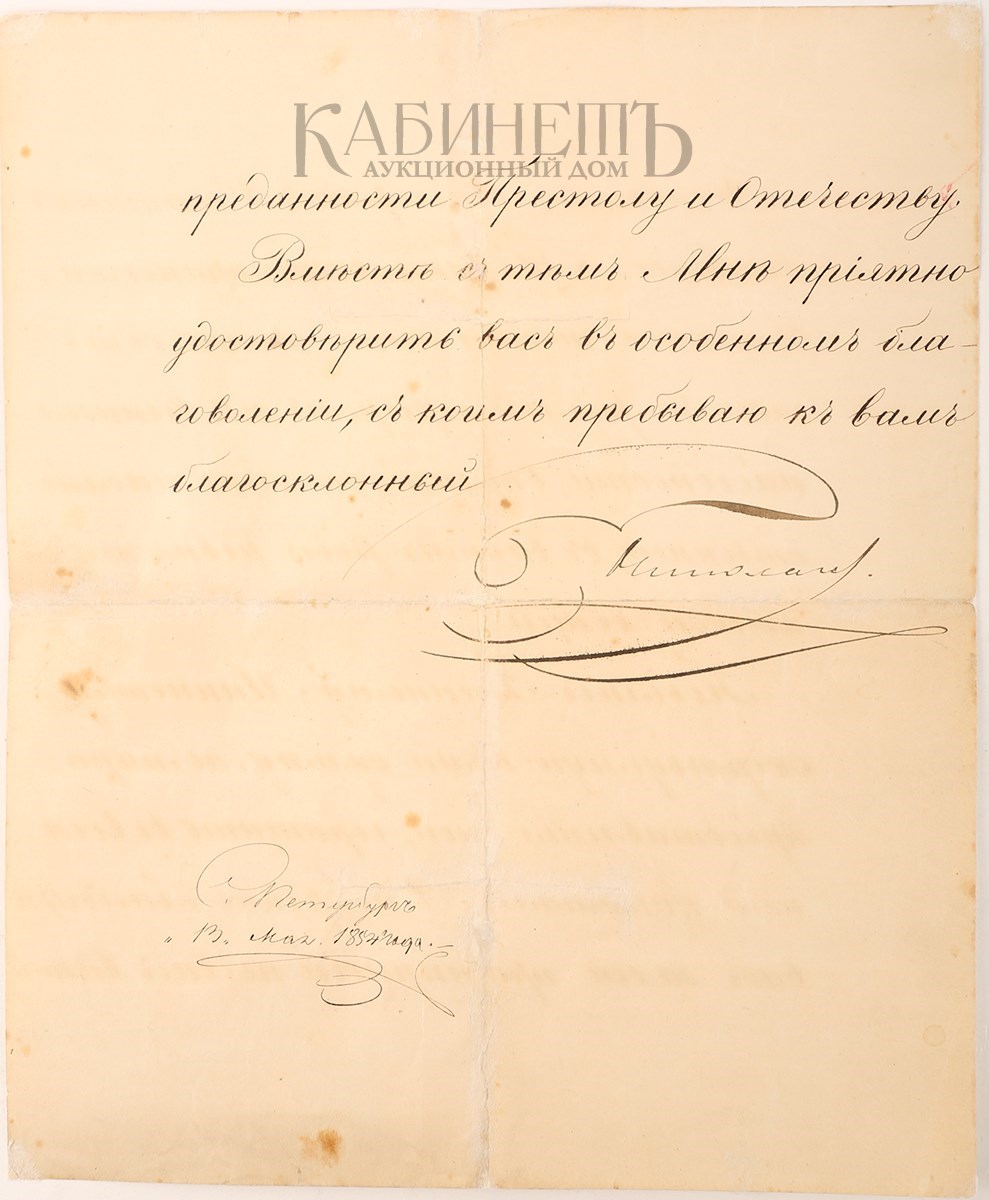 КАБИНЕТЪ
АУКЦИОННЫЙ ДОМ
преданности Престолу и Отечеству.
Вмѣстѣ съ тѣмъ Мнѣ пріятно
удостовѣрить васъ въ особенномъ бла-
говоленіи, съ коимъ пребываю къ вамъ
благосклонный
Николай.
С. Петербургъ
"13" Мая. 1854 года.